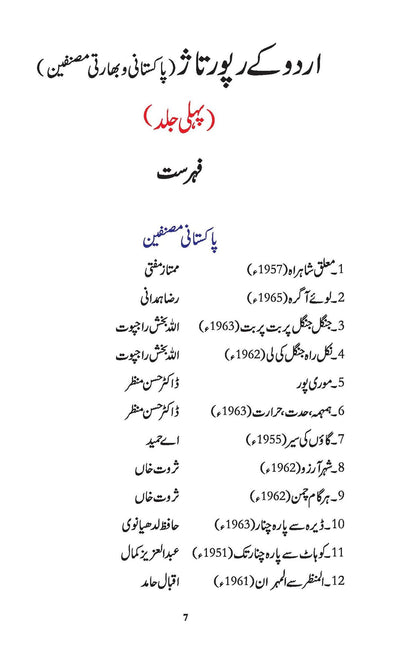 اردو کے رپورتاژ (پاکستانی و بھارتی مصنفین)
(پہلی جلد)
فہرست
پاکستانی مصنفین
1۔معلق شاہراہ (1957ء) ممتاز مفتی
2۔لوئے آگرہ (1965ء) رضا ہمدانی
3۔جنگل جنگل پربت پربت (1963ء) اللہ بخش راجپوت
4۔نکل راہ جنگل کی لی (1962ء) اللہ بخش راجپوت
5۔موری پور ڈاکٹر حسن منظر
6۔ہمہمہ، حدت، حرارت (1963ء) ڈاکٹر حسن منظر
7۔گاؤں کی سیر (1955ء) اے حمید
8۔شہر آرزو (1962ء) ثروت خاں
9۔ہرگام چمن (1962ء) ثروت خاں
10۔ڈیرہ سے پارہ چنار (1963ء) حافظ لدھیانوی
11۔کوہاٹ سے پارہ چنار تک (1951ء) عبدالعزیز کمال
12۔المنظر سے المہران (1961ء) اقبال حامد
7